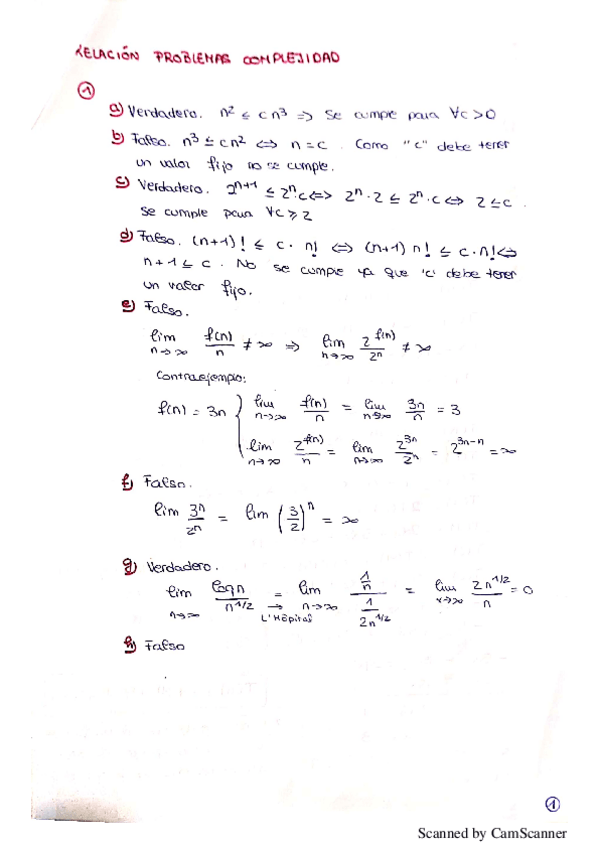 RELACIÓN PROBLEMAS COMPLEJIDAD
①
a) Verdadero. n² ≤ c n³ => Se cumple para ∀c>0
b) Falso. n³ ≤ cn² <=> n = c . Como "c" debe tener
un valor fijo no se cumple.
c) Verdadero. 2^(n+1) ≤ 2^n·c <=> 2^n·2 ≤ 2^n·c <=> 2 ≤ c .
Se cumple para ∀c ≥ 2
d) Falso. (n+1)! ≤ c · n! <=> (n+1) n! ≤ c·n! <=>
n+1 ≤ c . No se cumple ya que 'c' debe tener
un valor fijo.
e) Falso.
lim n->∞ f(n)/n ≠ ∞ => lim n->∞ 2^f(n)/2^n ≠ ∞
Contraejemplo:
f(n) = 3n { lim n->∞ f(n)/n = lim n->∞ 3n/n = 3
lim n->∞ 2^f(n)/n = lim n->∞ 2^3n/2^n = 2^(3n-n) = ∞
f) Falso.
lim 3^n/2^n = lim (3/2)^n = ∞
g) Verdadero.
lim n->∞ log n/n^1/2 = -> L'Hôpital lim n->∞ (1/n)/(1/2n^1/2) = lim x->∞ 2n^1/2/n = 0
h) Falso
①
Scanned by CamScanner